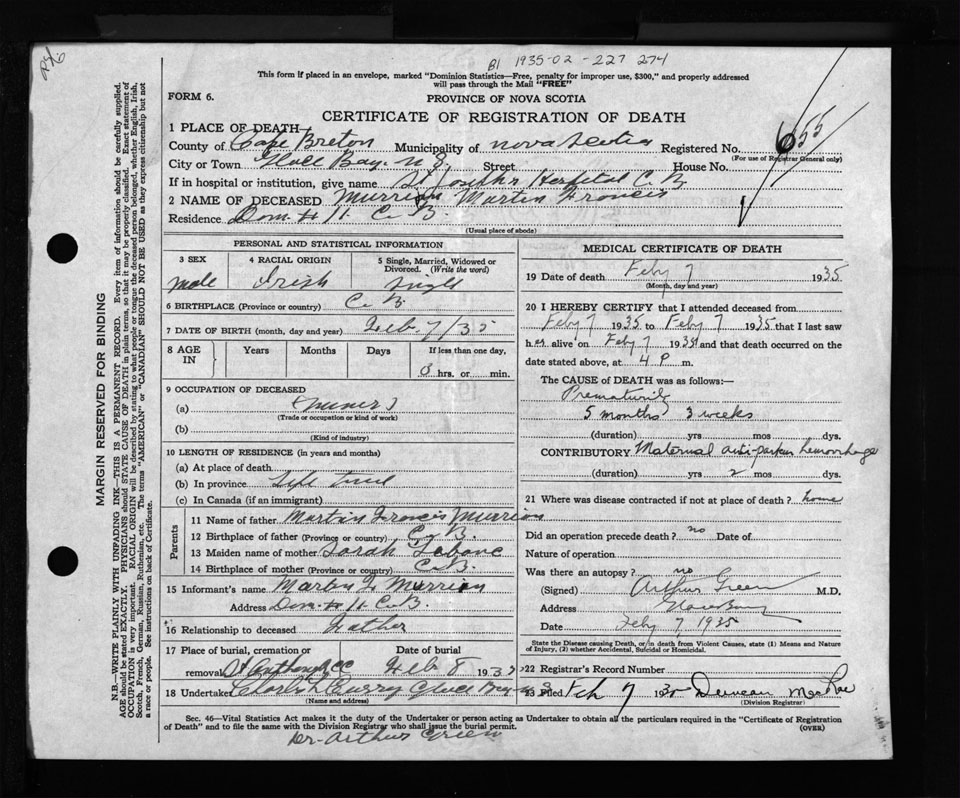 B1 1935-02-227 274
This form if placed in an envelope, marked "Dominion Statistics—Free, penalty for improper use, $300," and properly addressed
will pass through the Mail "FREE"
FORM 6.
PROVINCE OF NOVA SCOTIA
CERTIFICATE OF REGISTRATION OF DEATH
1 PLACE OF DEATH—
County of Cape Breton Municipality of Nova Scotia Registered No. 655
(For use of Registrar General only)
City or Town Glace Bay. N.S. Street House No.
If in hospital or institution, give name St Joseph's Hospital C.B.
2 NAME OF DECEASED Murrian Martin Francis
Residence Dom. # 11. C.B.
(Usual place of abode)
PERSONAL AND STATISTICAL INFORMATION
3 SEX
male
4 RACIAL ORIGIN
Irish
5 Single, Married, Widowed or Divorced. (Write the word)
Single
6 BIRTHPLACE (Province or country) C.B.
7 DATE OF BIRTH (month, day and year) Feb. 7/35
8 AGE IN
Years Months Days If less than one day,
hrs. or min.
9 OCCUPATION OF DECEASED
(a)
(Trade or occupation or kind of work)
(b)
(Kind of industry)
10 LENGTH OF RESIDENCE (in years and months)
(a) At place of death
(b) In province Life time
(c) In Canada (if an immigrant)
Parents
11 Name of father Martin Francis Murrian
12 Birthplace of father (Province or country) C.B.
13 Maiden name of mother Sarah
14 Birthplace of mother (Province or country) C.B.
15 Informant's name Martin F. Murrian
Address Dom. # 11 C.B.
16 Relationship to deceased Father
17 Place of burial, cremation or removal St Anthony CC
Date of burial
Feb 8 1935
18 Undertaker Charles Curry Glace Bay
(Name and address)
MEDICAL CERTIFICATE OF DEATH
19 Date of death Feby 7 1935
(Month, day and year)
20 I HEREBY CERTIFY that I attended deceased from
Feby 7 1935 to Feby 7 1935 that I last saw
h alive on Feby 7 1935 and that death occurred on the
date stated above, at 4 P m.
The CAUSE of DEATH was as follows:—
Prematurity
5 months 3 weeks
(duration) yrs mos dys.
CONTRIBUTORY Maternal anti-partum hemorrhage
(duration) yrs 2 mos dys.
21 Where was disease contracted if not at place of death? home
Did an operation precede death? no Date of
Nature of operation
Was there an autopsy? no
(Signed) Arthur Green M.D.
Address Glace Bay
Date Feby 7 1935
State the Disease causing Death, or in death from Violent Causes, state (1) Means and Nature of Injury, (2) whether Accidental, Suicidal or Homicidal.
22 Registrar's Record Number
23 Filed Feb 7 1935 Duncan MacRae
(Division Registrar)
Sec. 46—Vital Statistics Act makes it the duty of the Undertaker or person acting as Undertaker to obtain all the particulars required in the "Certificate of Registration
of Death" and to file the same with the Division Registrar who shall issue the burial permit.
(OVER)
Dr. Arthur Green
MARGIN RESERVED FOR BINDING
N.B.—WRITE PLAINLY WITH UNFADING INK—THIS IS A PERMANENT RECORD. Every item of information should be carefully supplied.
AGE should be stated EXACTLY. PHYSICIANS should STATE CAUSE OF DEATH in plain terms, so that it may be properly classified. Exact statement of
OCCUPATION is very important. RACIAL ORIGIN will be described by stating to what people or tongue the deceased person belonged, whether English, Irish,
Scotch, French, German, Russian, Ruthenian, etc. The terms "AMERICAN" or "CANADIAN" SHOULD NOT BE USED as they express citizenship but not
a race or people. See instructions on back of Certificate.